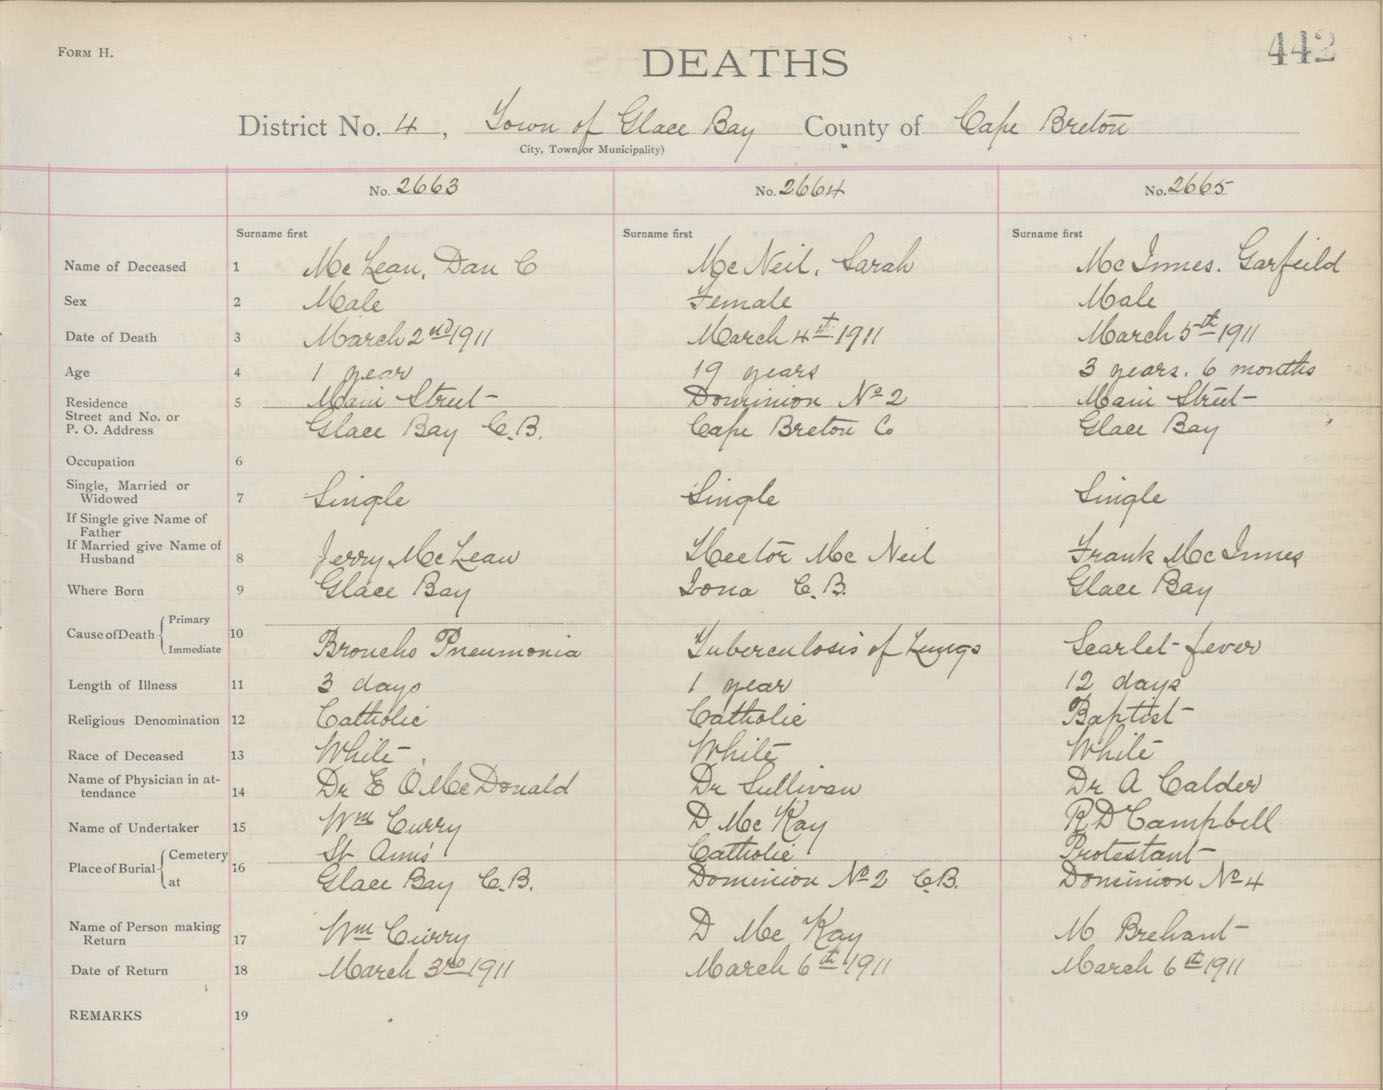 FORM H.
442
DEATHS
District No. 4, Town of Glace Bay County of Cape Breton
City, Town, or Municipality)
No. 2663 No. 2664 No. 2665
Surname first Surname first Surname first
Name of Deceased 1 McLean, Dan C McNeil, Sarah McInnes. Garfeild
Sex 2 Male Female Male
Date of Death 3 March 2nd 1911 March 4th 1911 March 5th 1911
Age 4 1 year 19 years 3 years. 6 months
Residence 5 Main Street Dominion No 2 Main Street
Street and No. or
P. O. Address Glace Bay C.B. Cape Breton Co Glace Bay
Occupation 6
Single, Married or
Widowed 7 Single Single Single
If Single give Name of
Father
If Married give Name of
Husband 8 Jerry McLean Hector McNeil Frank McInnes
Where Born 9 Glace Bay Iona C.B. Glace Bay
Primary
Cause of Death 10 Broncho Pneumonia Tuberculosis of Lungs Scarlet fever
Immediate
Length of Illness 11 3 days 1 year 12 days
Religious Denomination 12 Catholic Catholic Baptist
Race of Deceased 13 White White White
Name of Physician in at-
tendance 14 Dr E O McDonald Dr Sullivan Dr A Calder
Name of Undertaker 15 Wm Curry D McKay R D Campbell
Cemetery St Anns' Catholic Protestant
Place of Burial 16
at Glace Bay C.B. Dominion No 2 C.B. Dominion No 4
Name of Person making
Return 17 Wm Curry D McKay M Brehant
Date of Return 18 March 3rd 1911 March 6th 1911 March 6th 1911
REMARKS 19